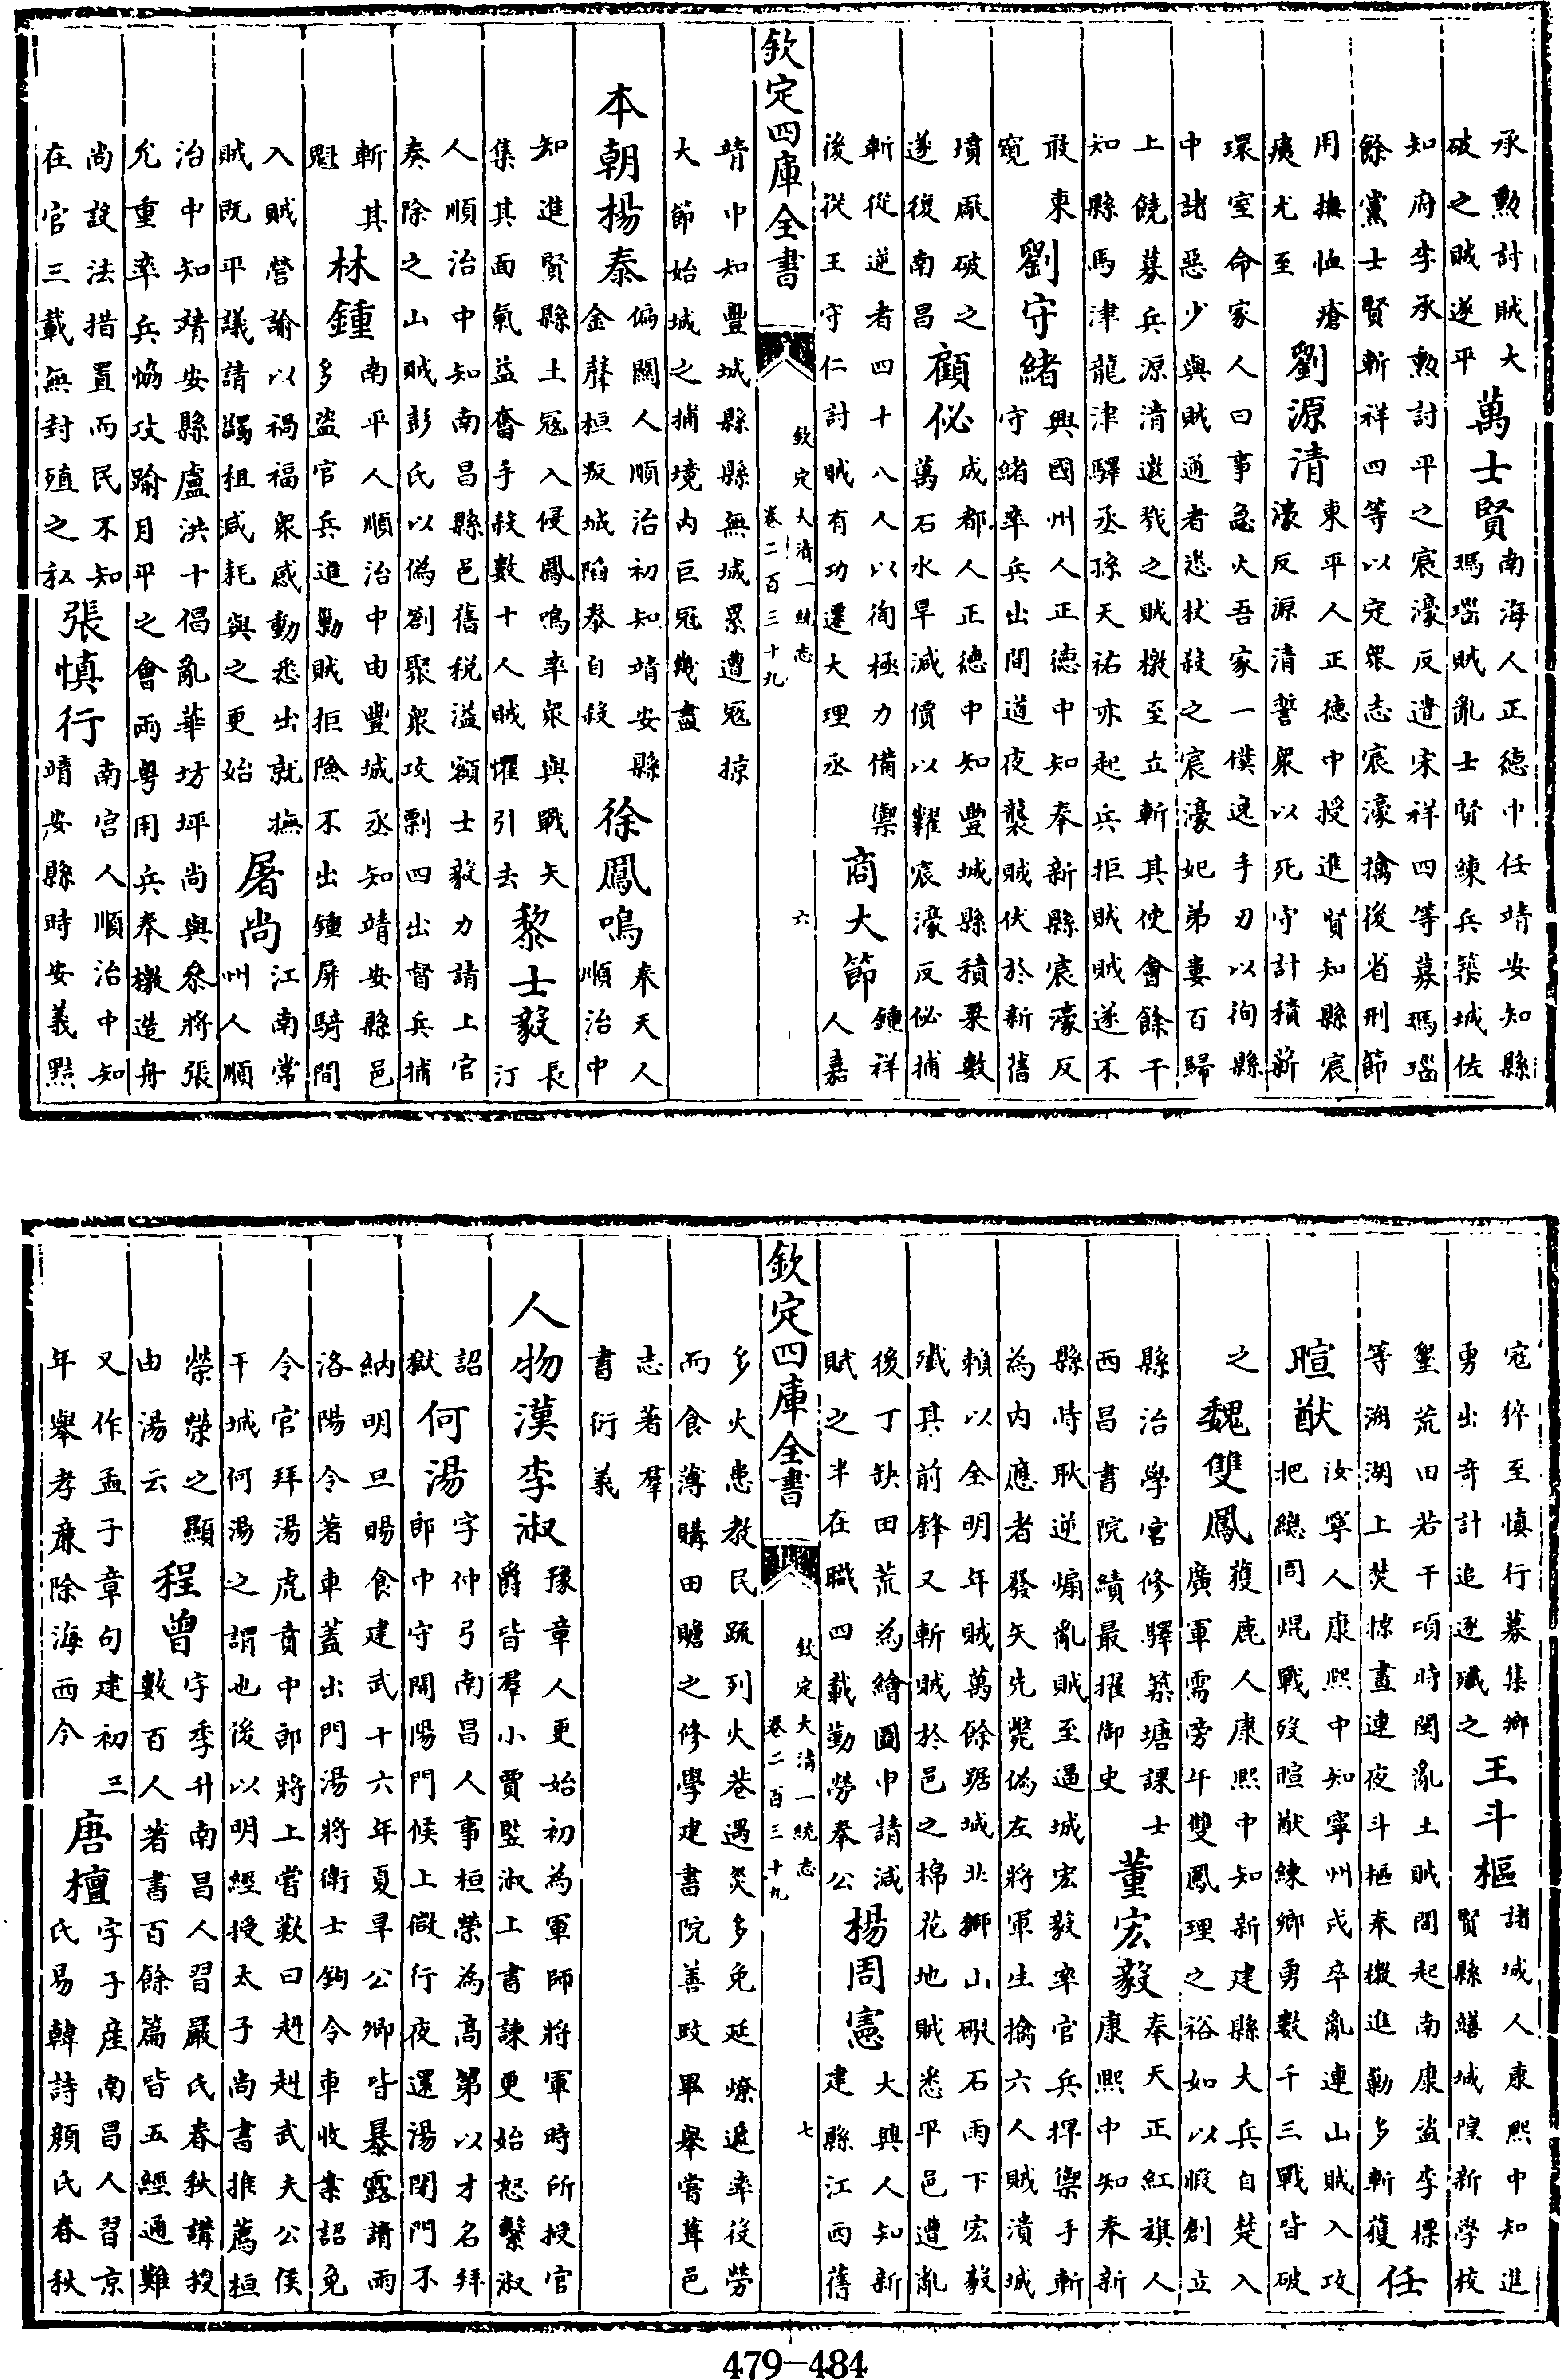 承勲討賊大
破之賊遂平
萬士賢
南海人正德中任靖安知縣
瑪瑙賊亂士賢練兵築城佐
知府李承勲討平之宸濠反遣宋祥四等募瑪瑙
餘黨士賢斬祥四等以定衆志宸濠擒後省刑節
用撫恤瘡
痍尤至
劉源清
東平人正德中授進賢知縣宸
濠反源清誓衆以死守計積薪
環室命家人曰事急火吾家一僕逸手刃以徇縣
中諸惡少與賊通者悉杖殺之宸濠妃弟婁百歸
上饒募兵源清邀戮之賊檄至立斬其使會餘干
知縣馬津龍津驛丞孫天祐亦起兵拒賊賊遂不
敢東
窺
劉守緒
興國州人正德中知奉新縣宸濠反
守緒率兵出間道夜襲賊伏於新舊
墳厰破之
遂復南昌
顧佖
成都人正德中知豐城縣積粟數
萬石水旱減價以糶宸濠反佖捕
斬從逆者四十八人以徇極力備禦
後從王守仁討賊有功遷大理丞
商大節
鍾祥
人嘉
欽定四庫全書
欽定大清一統志
卷二百三十九
六
靖中知豐城縣縣無城累遭冦掠
大節始城之捕境内巨冦幾盡
本朝楊泰
偏關人順治初知靖安縣
金聲桓叛城陷泰自殺
徐鳳鳴
奉天人
順治中
知進賢縣土冦入侵鳳鳴率衆與戰矢
集其面氣益奮手殺數十人賊懼引去
黎士毅
長
汀
人順治中知南昌縣邑舊税溢額士毅力請上官
奏除之山賊彭氏以偽劄聚衆攻剽四出督兵捕
斬其
魁
林鍾
南平人順治中由豐城丞知靖安縣邑
多盜官兵進勦賊拒險不出鍾屏騎間
入賊營諭以禍福衆感動悉出就撫
賊既平議請蠲租減耗與之更始
屠尚
江南常
州人順
治中知靖安縣盧洪十倡亂華坊坪尚與叅將張
允重率兵恊攻踰月平之會兩粤用兵奉檄造舟
尚設法措置而民不知
在官三載無封殖之私
張慎行
南宫人順治中知
靖安縣時安義黠
寇猝至慎行募集鄉
勇出奇計追逐殲之
王斗樞
諸城人康熙中知進
賢縣繕城隍新學校
墾荒田若干項時閩亂土賊間起南康盜李標
等溯湖上焚掠晝連夜斗樞奉檄進勦多斬獲任
暄猷
汝寧人康熙中知寧州戍卒亂連山賊入攻
把總周焜戰歿暄猷練鄉勇數千三戰皆破
之
魏雙鳳
獲鹿人康熙中知新建縣大兵自楚入
廣軍需旁午雙鳳理之裕如以暇創立
縣治學宮修驛築塘課士
西昌書院績最擢御史
董宏毅
奉天正紅旗人
康熙中知奉新
縣時耿逆煽亂賊至逼城宏毅率官兵捍禦手斬
為内應者發矢先斃偽左將軍生擒六人賊潰城
賴以全明年賊萬餘踞城北獅山礮石雨下宏毅
殲其前鋒又斬賊於邑之棉花地賊悉平邑遭亂
後丁缺田荒為繪圖申請減
賦之半在職四載勤勞奉公
楊周憲
大興人知新
建縣江西舊
欽定四庫全書
欽定大清一統志
卷二百三十九
七
多火患教民疏列火巷遇災多免延燎遞率役勞
而食薄購田贍之修學建書院善政畢舉嘗葺邑
志著羣
書衍義
人物漢李淑
豫章人更始初為軍師將軍時所授官
爵皆羣小賈豎淑上書諫更始怒繫淑
詔
獄
何湯
字仲弓南昌人事桓榮為高第以才名拜
郎中守開陽門候上微行夜還湯閉門不
納明旦賜食建武十六年夏旱公卿皆暴露請雨
洛陽令著車蓋出門湯將衛士鉤令車收案詔免
令官拜湯虎賁中郎將上嘗歎曰赳赳武夫公侯
干城何湯之謂也後以明經授太子尚書推薦桓
榮榮之顯
由湯云
程曾
字季升南昌人習嚴氏春秋講授
數百人著書百餘篇皆五經通難
又作孟子章句建初三
年舉孝廉除海西令
唐檀
字子産南昌人習京
氏易韓詩顔氏春秋
479—484